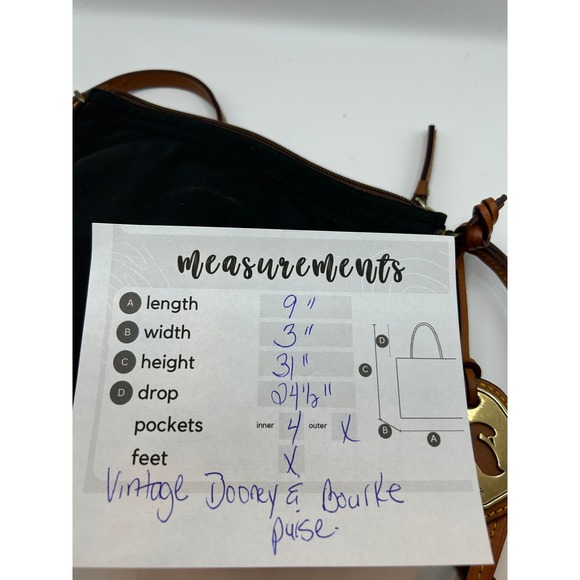 measurements
A length 9"
B width 3"
C height 31"
D drop 24 1/2"
pockets inner 4 outer X
feet X
D
C
B
A
Vintage Dooney & Bourke
purse.